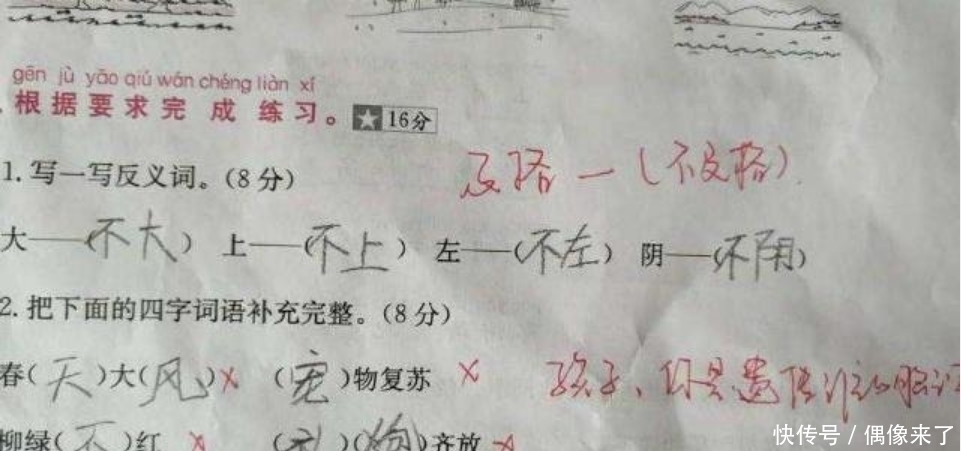 gēn jù yāo qiú wán chéng liàn xí
根据要求完成练习。★16分
1.写一写反义词。(8分)
及格一(不及格)
大——(不大) 上——(不上) 左——(不左) 阴——(不阴)
2.把下面的四字词语补充完整。(8分)
春(天)大(风)× (宠)物复苏 × 孩子、你是遗传谁的
柳绿(不)红 × ( )(狗)齐放 ×
快传号/偶像来了